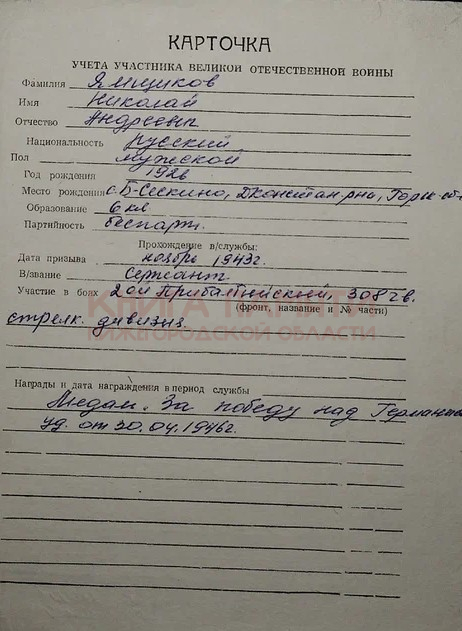 КАРТОЧКА
УЧЕТА УЧАСТНИКА ВЕЛИКОЙ ОТЕЧЕСТВЕННОЙ ВОЙНЫ
Фамилия Ямщиков
Имя Николай
Отчество Андреевич
Национальность русский
Пол мужской
Год рождения 1926
Место рождения с. Б-Сескино, Д Констан р-на, Горьк. об
Образование 6 кл
Партийность беспарт.
Прохождение в/службы:
Дата призыва ноябрь 1943г.
В/звание Сержант
Участие в боях 2ой Прибалтийский, 308 гв.
(фронт, название и № части)
стрелк. дивизия.
КНИГА ПАМЯТИ
НИЖЕГОРОДСКОЙ ОБЛАСТИ
Награды и дата награждения в период службы
Медаль. За победу над Германи
уд. от 30.04.1946г.